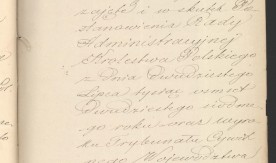 zajęł i w skutek Po-
stanowienia Rady
Administracyjnej
Królestwa Polskiego
z dnia Dwudziestego
Lipca tysiąc ośmset
Dwudziestego siódme-
go roku oraz wyro-
ku Trybunału Cywil-
nego Województwa